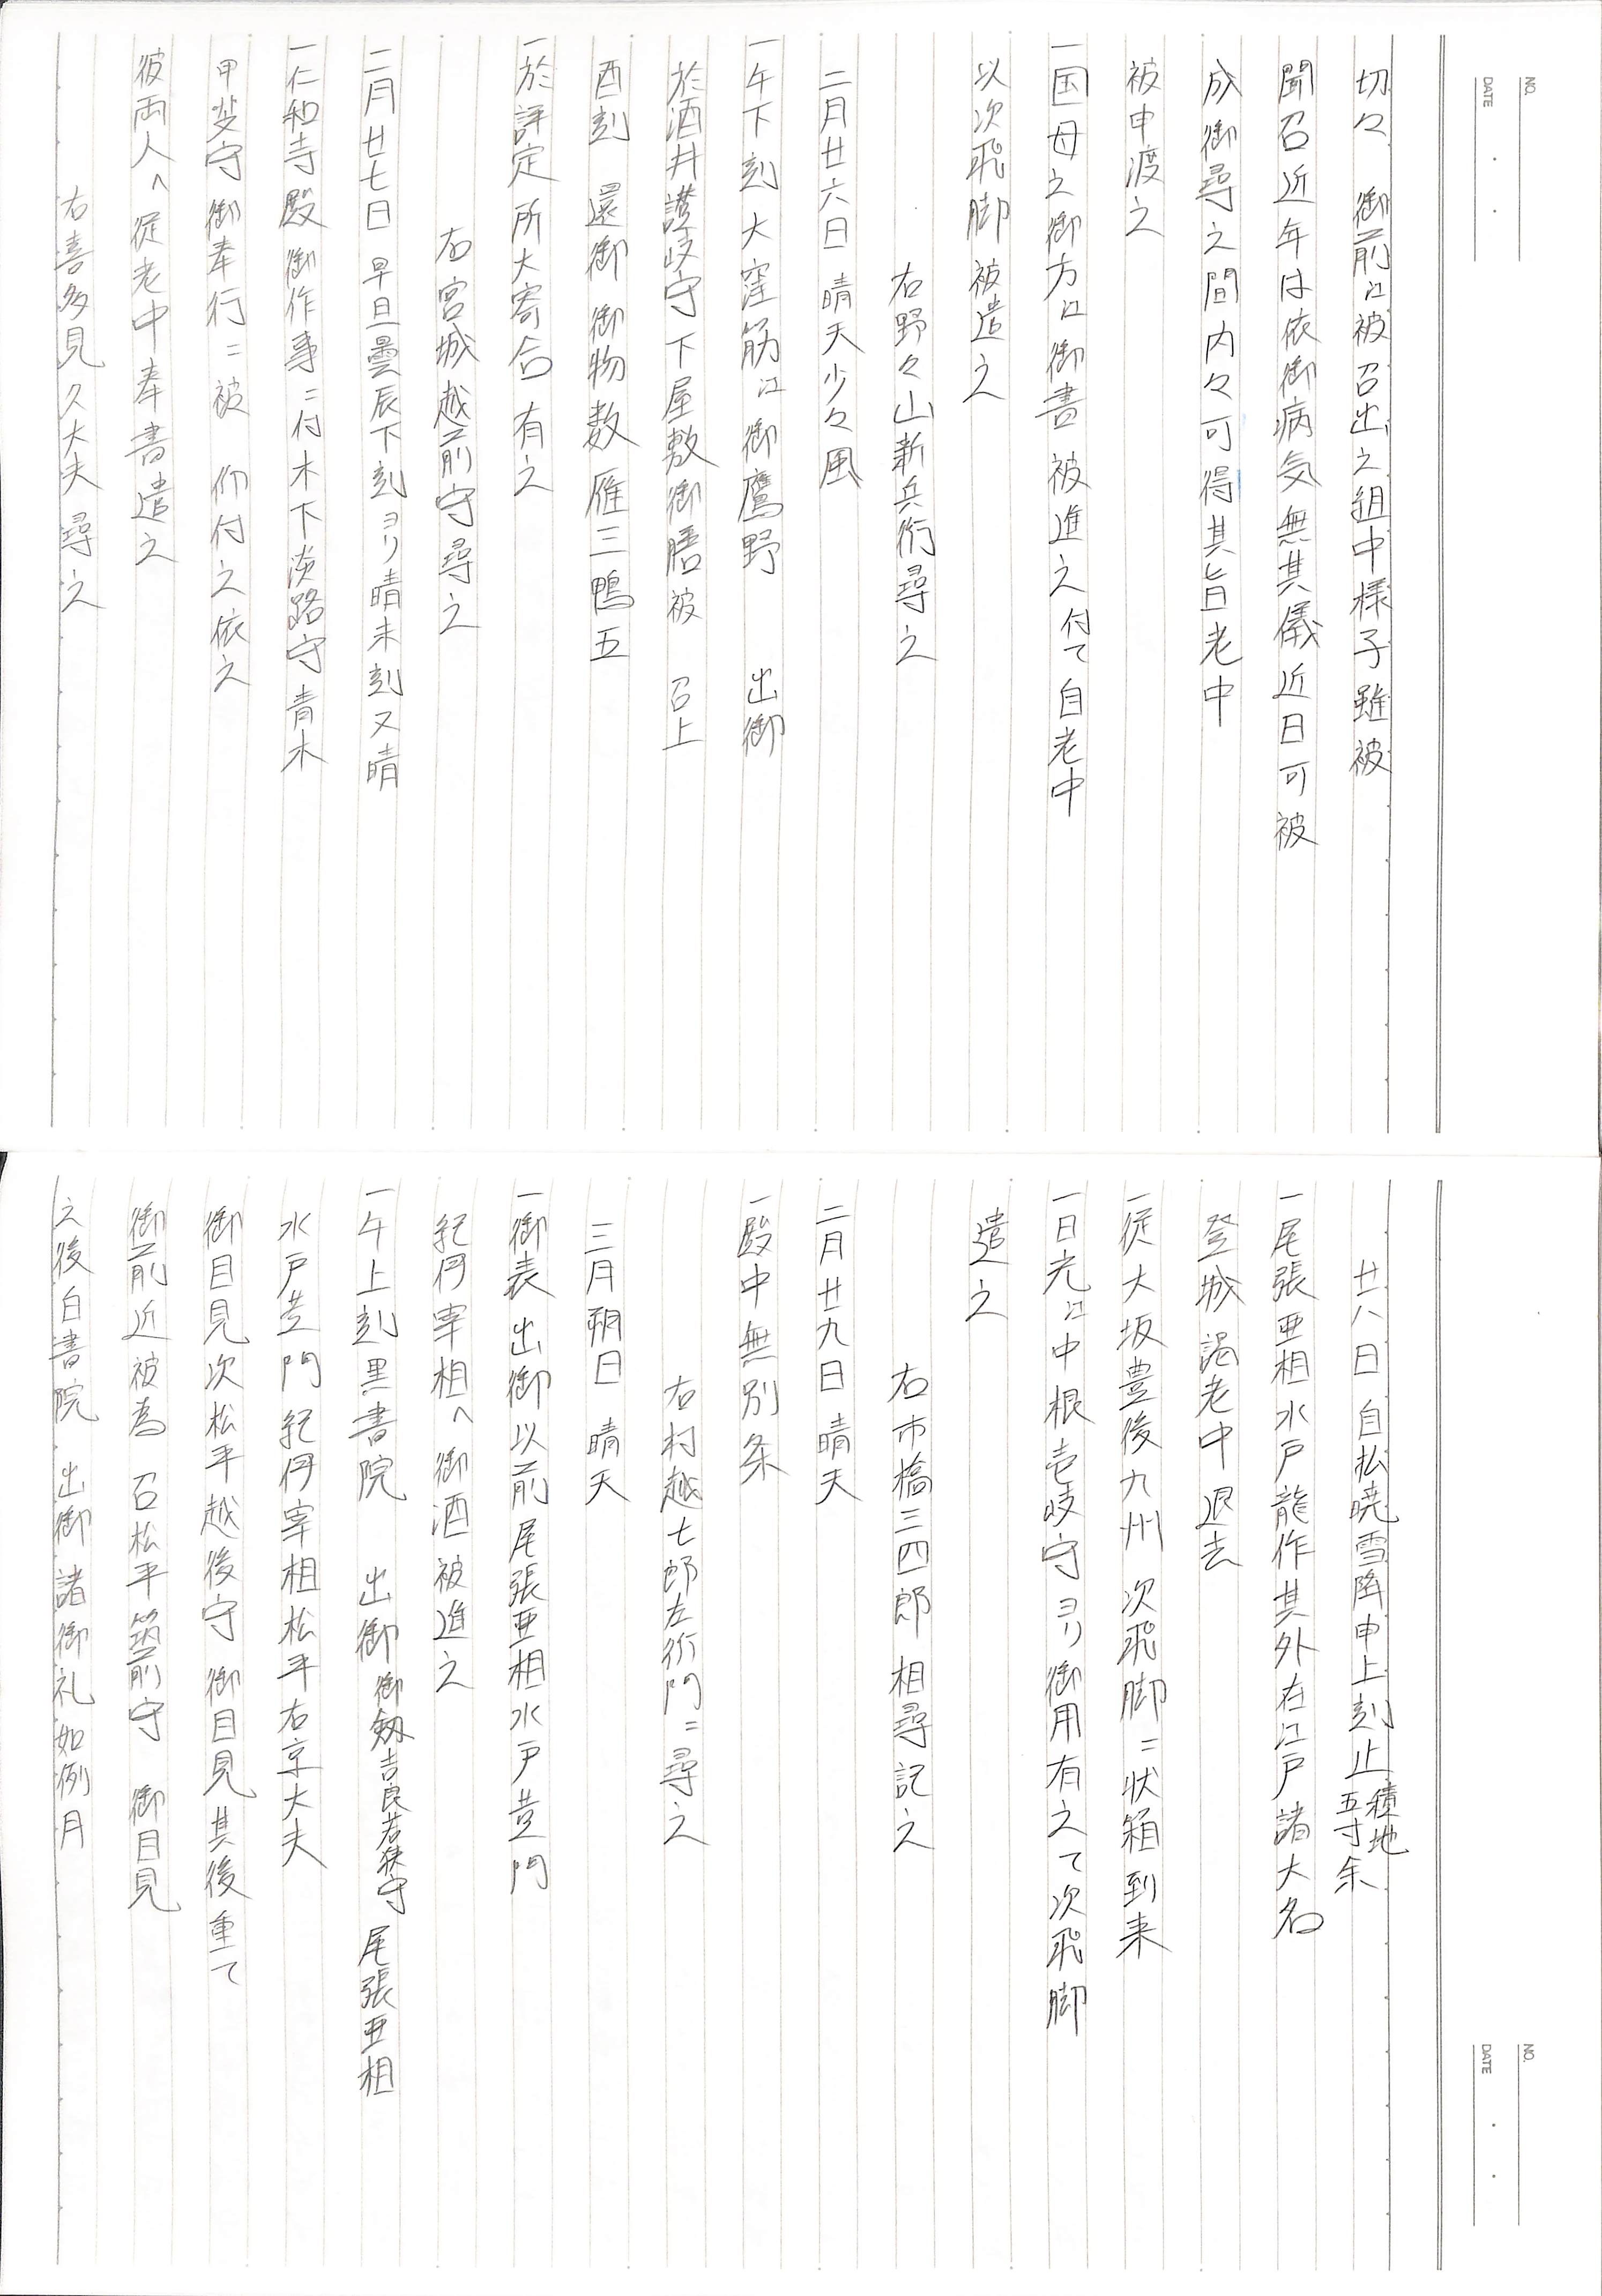 NO.
DATE
切々　御前江被召出之組中様子雖被
聞召近年は依御病気無其儀近日可被
成御尋之間内々可得其旨老中
被申渡之
一国母之御方江御書被進之付て自老中
以次飛脚被遣之
右野々山新兵衛尋之
二月廿六日　晴天少々風
一午下刻大窪筋江御鷹野　出御
於酒井讃岐守下屋敷御膳被　召上
酉刻　還御　御物数　雁三　鴨五
一於評定所大寄合有之
右宮城越前守尋之
二月廿七日　早旦曇辰下刻ヨリ晴未刻又晴
一仁和寺殿御作事ニ付木下淡路守青木
甲斐守御奉行ニ被　仰付之依之
彼両人へ従老中奉書遣之
右喜多見久大夫尋之
NO.
DATE
廿八日　自払暁雪降申上刻止 積地五寸余
一尾張亜相水戸龍作其外在江戸諸大名
登城謁老中退去
一従大坂豊後九州　次飛脚ニ状箱到来
一日光江中根壱岐守ヨリ御用有之て次飛脚
遣之
右市橋三四郎相尋記之
二月廿九日　晴天
一殿中無別条
右村越七郎左衛門ニ尋之
三月朔日　晴天
一御表　出御以前尾張亜相水戸黄門
紀伊宰相へ御酒被進之
一午上刻黒書院　出御 御劔吉良若狭守　尾張亜相
水戸黄門紀伊宰相松平右京大夫
御目見次松平越後守　御目見其後重て
御前近被為　召松平筑前守　御目見
之後白書院　出御諸御礼如例月